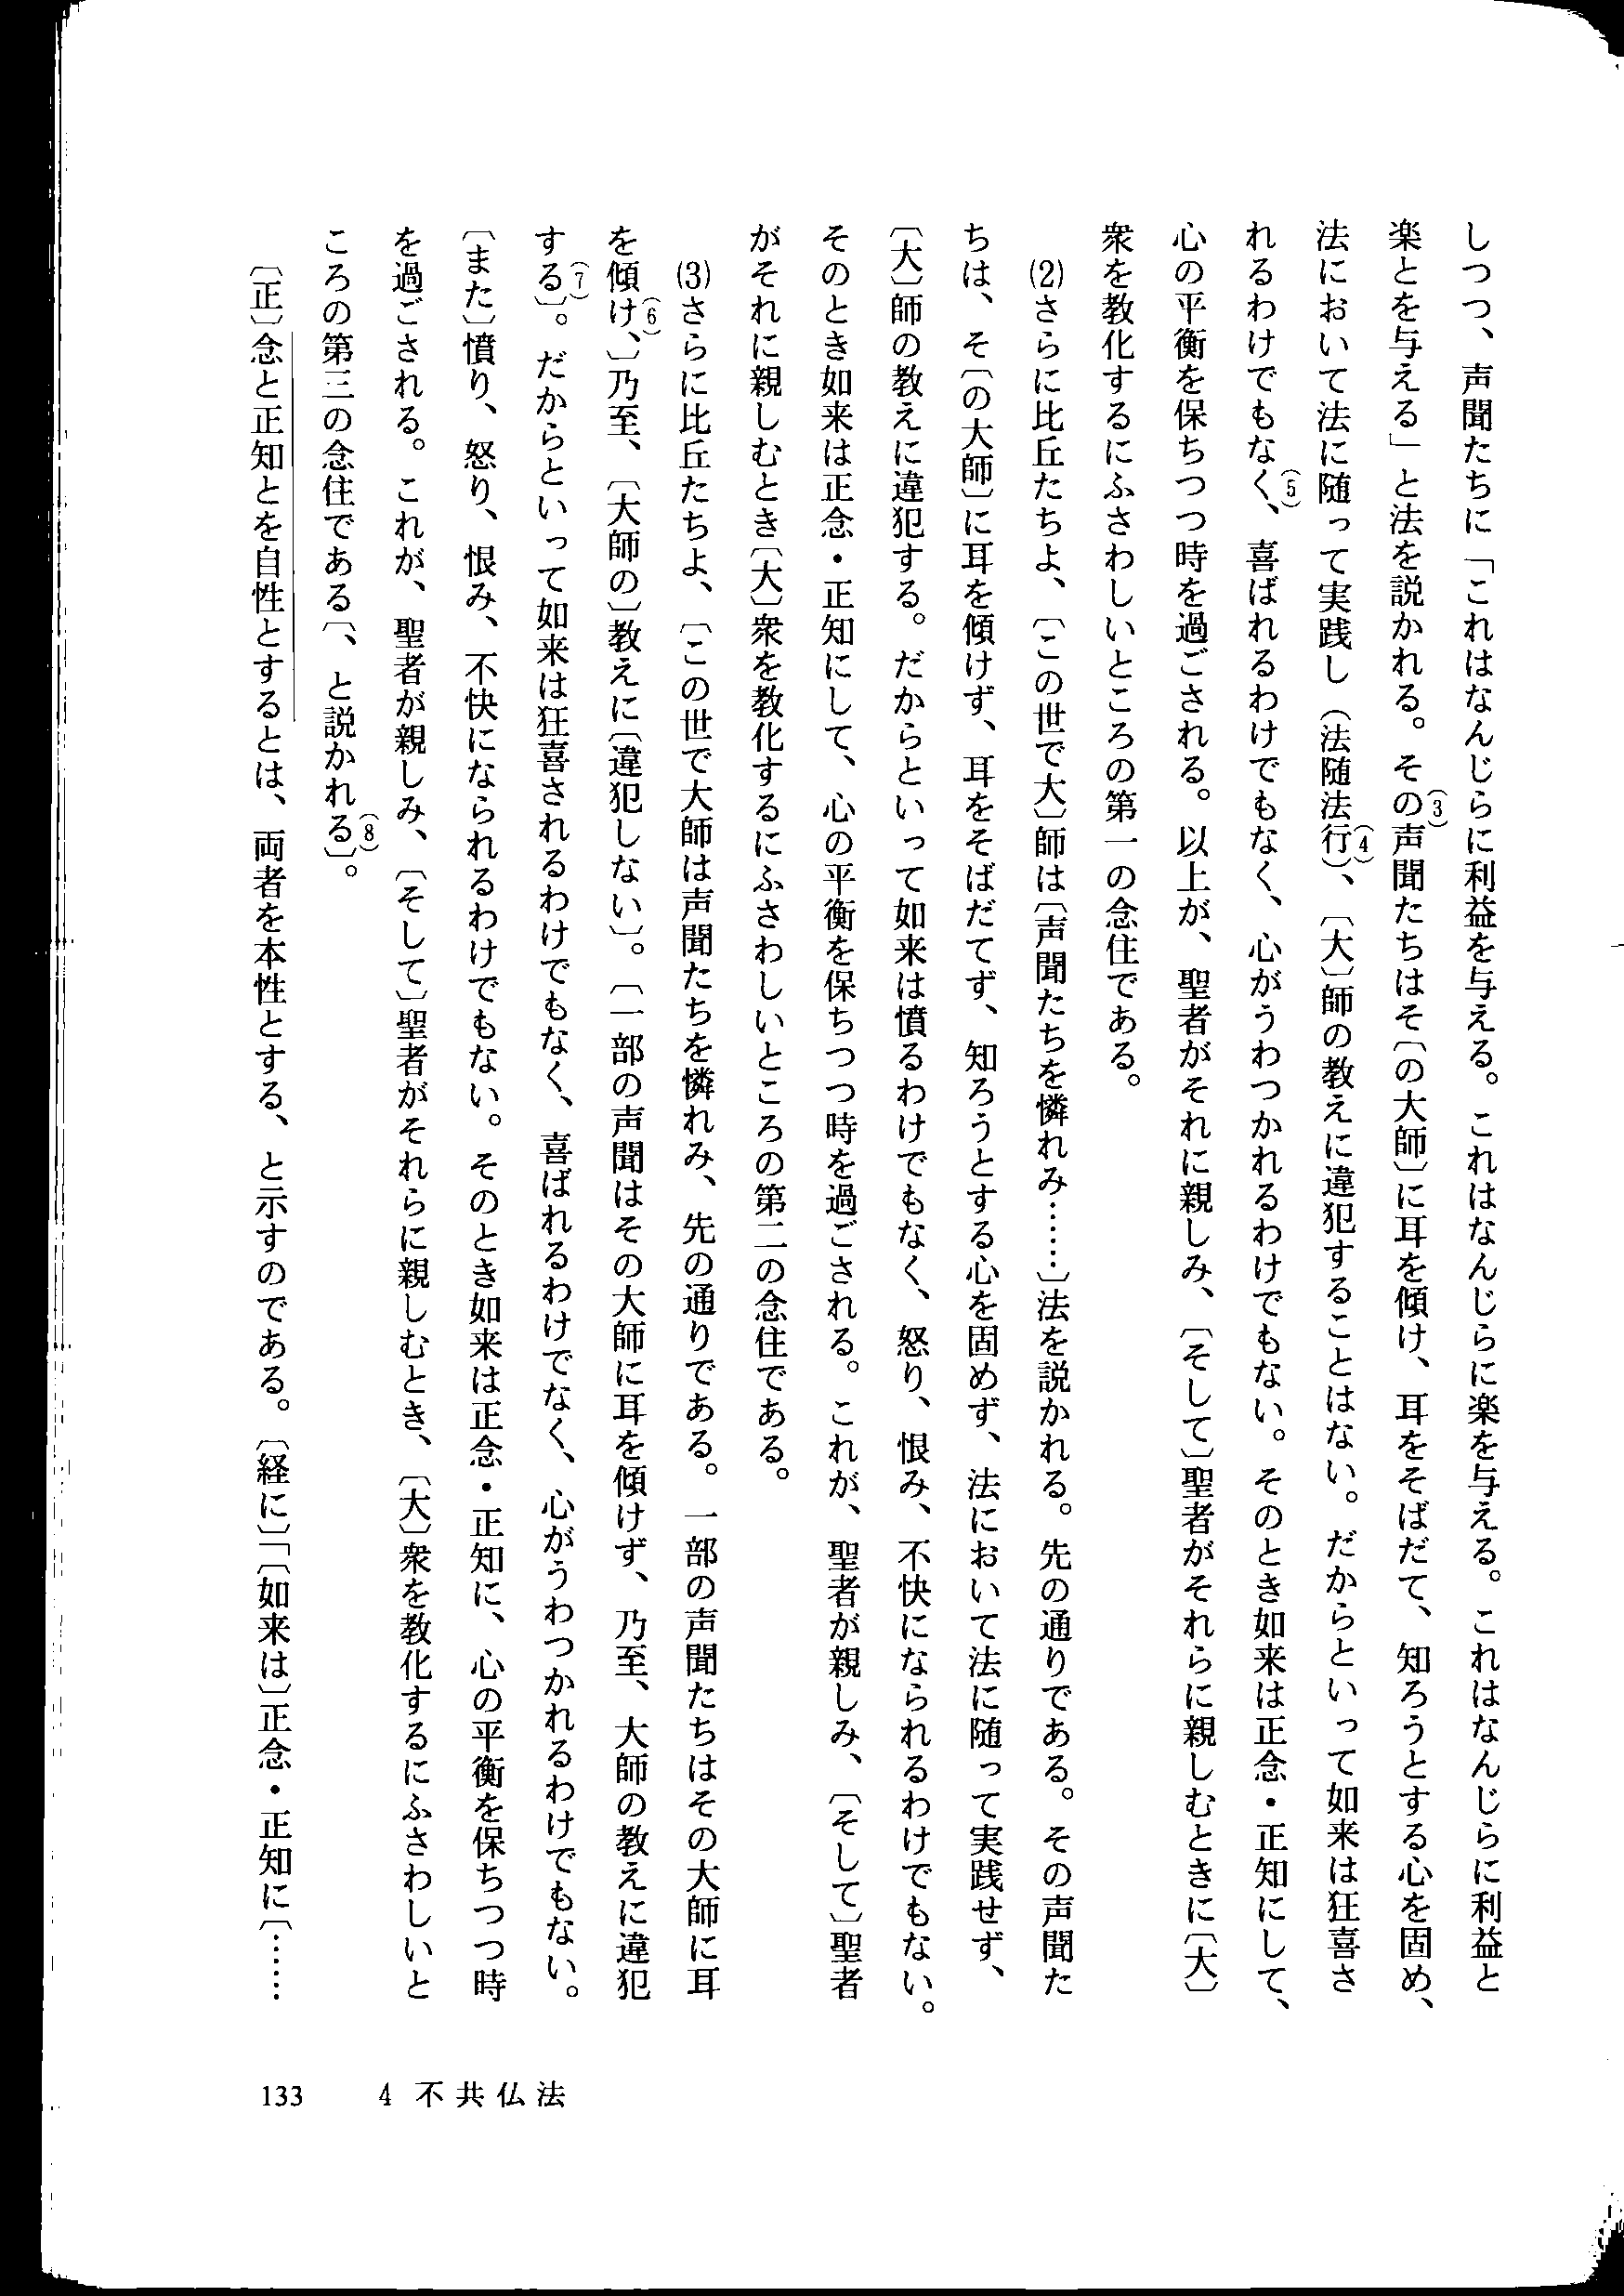 しつつ、声聞たちに「これはなんじらに利益を与える。これはなんじらに楽を与える。これはなんじらに利益と
楽とを与える」と法を説かれる。その(3)声聞たちはそ〔の大師〕に耳を傾け、耳をそばだて、知ろうとする心を固め、
法において法に随って実践し（法随法行）(4)、〔大〕師の教えに違犯することはない。だからといって如来は狂喜さ
れるわけでもなく(5)、喜ばれるわけでもなく、心がうわつかれるわけでもない。そのとき如来は正念・正知にして、
心の平衡を保ちつつ時を過ごされる。以上が、聖者がそれに親しみ、〔そして〕聖者がそれらに親しむときに〔大〕
衆を教化するにふさわしいところの第一の念住である。
(2)さらに比丘たちよ、〔この世で大〕師は〔声聞たちを憐れみ……〕法を説かれる。先の通りである。その声聞た
ちは、そ〔の大師〕に耳を傾けず、耳をそばだてず、知ろうとする心を固めず、法において法に随って実践せず、
〔大〕師の教えに違犯する。だからといって如来は憤るわけでもなく、怒り、恨み、不快になられるわけでもない。
そのとき如来は正念・正知にして、心の平衡を保ちつつ時を過ごされる。これが、聖者が親しみ、〔そして〕聖者
がそれに親しむとき〔大〕衆を教化するにふさわしいところの第二の念住である。
(3)さらに比丘たちよ、〔この世で大師は声聞たちを憐れみ、先の通りである。一部の声聞たちはその大師に耳
を傾け(6)、〕乃至、〔大師の〕教えに〔違犯しない〕。〔一部の声聞はその大師に耳を傾けず、乃至、大師の教えに違犯
する(7)〕。だからといって如来は狂喜されるわけでもなく、喜ばれるわけでなく、心がうわつかれるわけでもない。
〔また〕憤り、怒り、恨み、不快になられるわけでもない。そのとき如来は正念・正知に、心の平衡を保ちつつ時
を過ごされる。これが、聖者が親しみ、〔そして〕聖者がそれらに親しむとき、〔大〕衆を教化するにふさわしいと
ころの第三の念住である〔、と説かれる(8)〕。
〔正〕念と正知とを自性とするとは、両者を本性とする、と示すのである。〔経に〕「〔如来は〕正念・正知に〔……
133　4 不共仏法